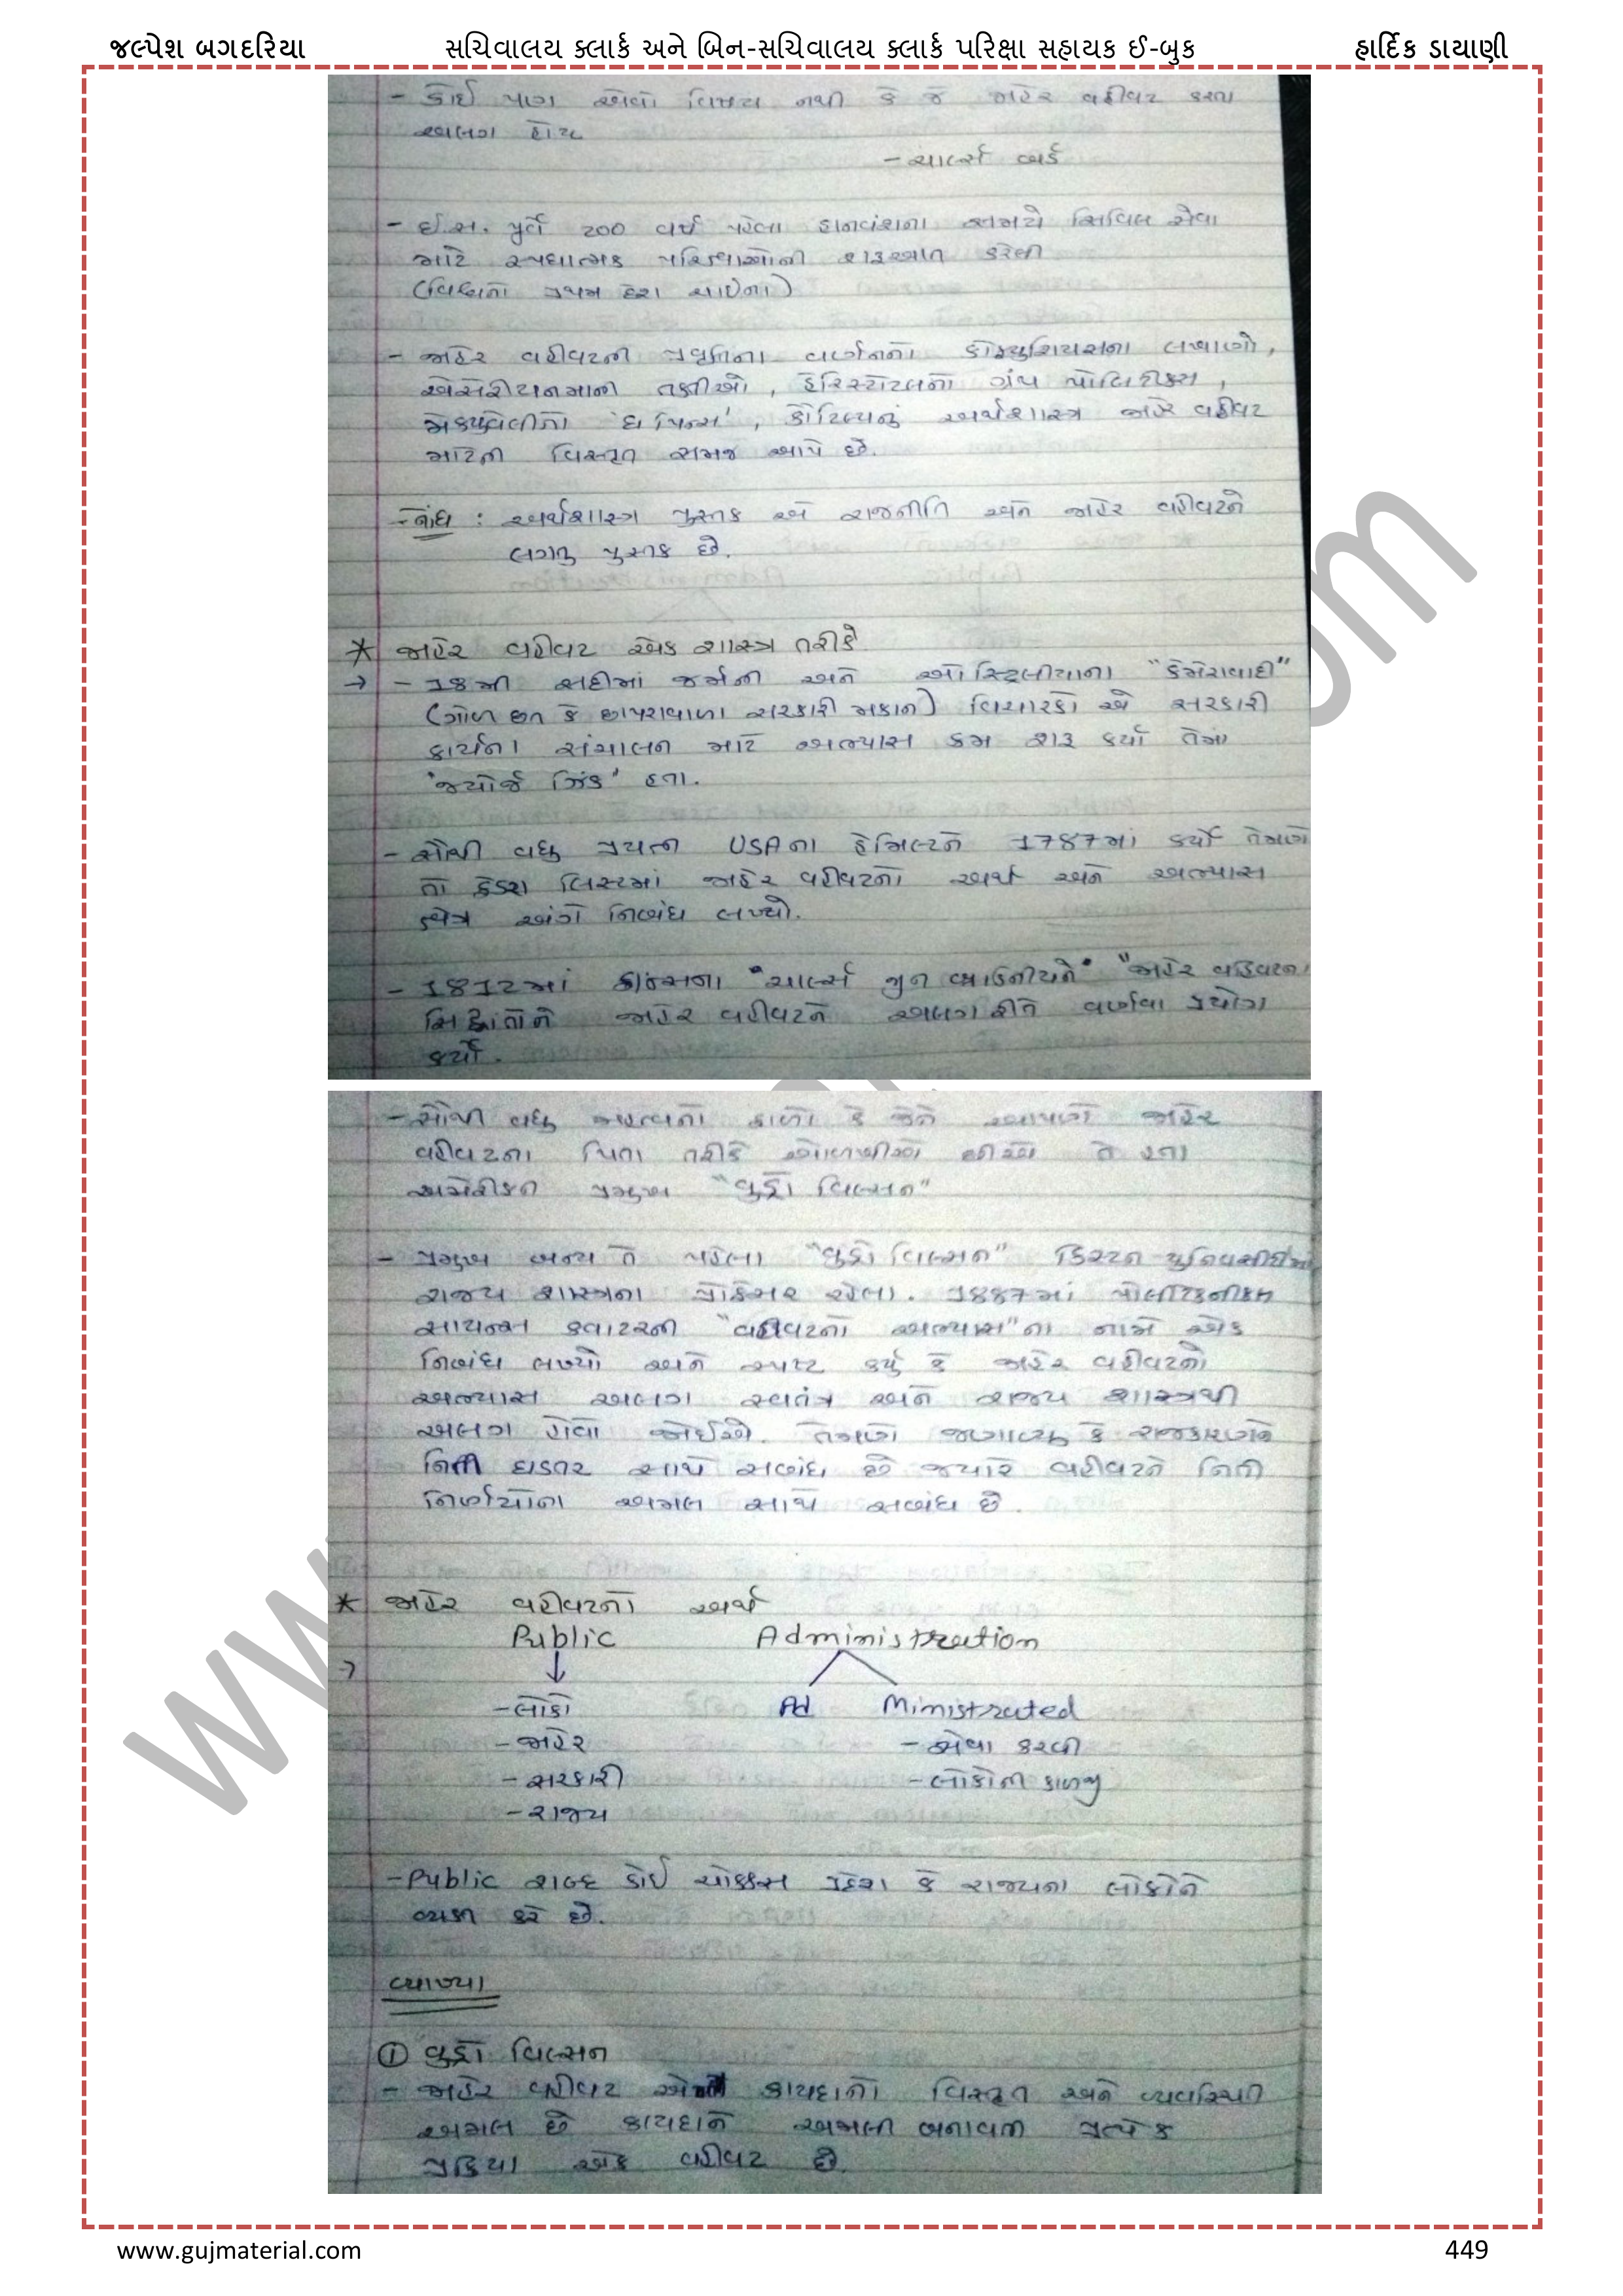 જલ્પેશ બગદરિયા સચિવાલય ક્લાર્ક અને બિન-સચિવાલય ક્લાર્ક પરિક્ષા સહાયક ઈ-બુક હાર્દિક ડાયાણી
- કોઈ પણ એવો વિષય નથી કે જે જાહેર વહીવટ કરતા
અલગ હોય
- ચાર્લ્સ બર્ડ
- ઈ.સ. પુર્વે 200 વર્ષ પહેલા હાનવંશના સમયે સિવિલ સેવા
માટે સ્પર્ધાત્મક પરિક્ષાઓની શરૂઆત કરેલી
(વિશ્વનો પ્રથમ દેશ ચાઈના)
- જાહેર વહીવટની પ્રવૃતિના વર્ણનનો કોન્ફ્યુશિયસના લખાણો,
તક્તીઓ, ગ્રંથ પોલિટીક્સ,
મેક્યાવેલીનો 'ધ પ્રિન્સ', કૌટિલ્યનું અર્થશાસ્ત્ર જાહેર વહીવટ
માટેની વિસ્તૃત સમજ આપે છે.
- નોંધ : અર્થશાસ્ત્ર પુસ્તક એ રાજનીતિ અને જાહેર વહીવટને
લગતુ પુસ્તક છે.
* જાહેર વહીવટ એક શાસ્ત્ર તરીકે
→ - 18મી સદીમાં જર્મની અને ઓસ્ટ્રિલીયાના "કેમેરાવાદી"
(ગોળ છત કે છાપરાવાળા સરકારી મકાન) વિચારકો એ સરકારી
કાર્યના સંચાલન માટે અભ્યાસ ક્રમ શરૂ કર્યો તેમા
'જ્યોર્જ ઝિંક' હતા.
- સૌથી વધુ પ્રયત્ન USAના હેમિલ્ટને 1787માં કર્યો તેમણે
તો ફેડરા લિસ્ટમાં જાહેર વહીવટનો અર્થ અને અભ્યાસ
ક્ષેત્ર અંગે નિબંધ લખ્યો.
- 1812માં ફ્રાન્સના "ચાર્લ્સ જીન બાઉનીયને" "જાહેર વહિવટના
સિદ્ધાંતોને જાહેર વહીવટને અલગ રીતે વર્ણવા પ્રયોગ
કર્યો.
- સૌથી વધુ મહત્વનો ફાળો કે જેને આપણે જાહેર
વહીવટના પિતા તરીકે ઓળખીએ છીએ તે હતા
અમેરીકન પ્રમુખ "વુડ્રો વિલ્સન"
- પ્રમુખ બન્યા તે પહેલા "વુડ્રો વિલ્સન" યુનિવર્સીટીમાં
રાજ્ય શાસ્ત્રના પ્રોફેસર રહેલા. 1887માં
સાયન્સ ક્વાટરની "વહીવટનો અભ્યાસ"ના નામે એક
નિબંધ લખ્યો અને સ્પષ્ટ કર્યુ કે જાહેર વહીવટનો
અભ્યાસ અલગ સ્વતંત્ર અને રાજ્ય શાસ્ત્રથી
અલગ હોવો જોઈએ. તેમણે જણાવ્યુ કે રાજકારણને
નિતી ઘડતર સાથે સબંધ છે જ્યારે વહીવટને નિતી
નિર્ણયોના અમલ સાથે સબંધ છે.
* જાહેર વહીવટનો અર્થ
Public Administration
→
- લોકો Ad Ministrated
- જાહેર - સેવા કરવી
- સરકારી - લોકોની કાળજી
- રાજ્ય
- Public શબ્દ કોઈ ચોક્કસ પ્રદેશ કે રાજ્યના લોકોને
વ્યક્ત કરે છે.
વ્યાખ્યા
① વુડ્રો વિલ્સન
- જાહેર વહીવટ એ કાયદાનો વિસ્તૃત અને વ્યવસ્થિત
અમલ છે કાયદાને અમલી બનાવતી પ્રત્યેક
પ્રક્રિયા એક વહીવટ છે
www.gujmaterial.com 449